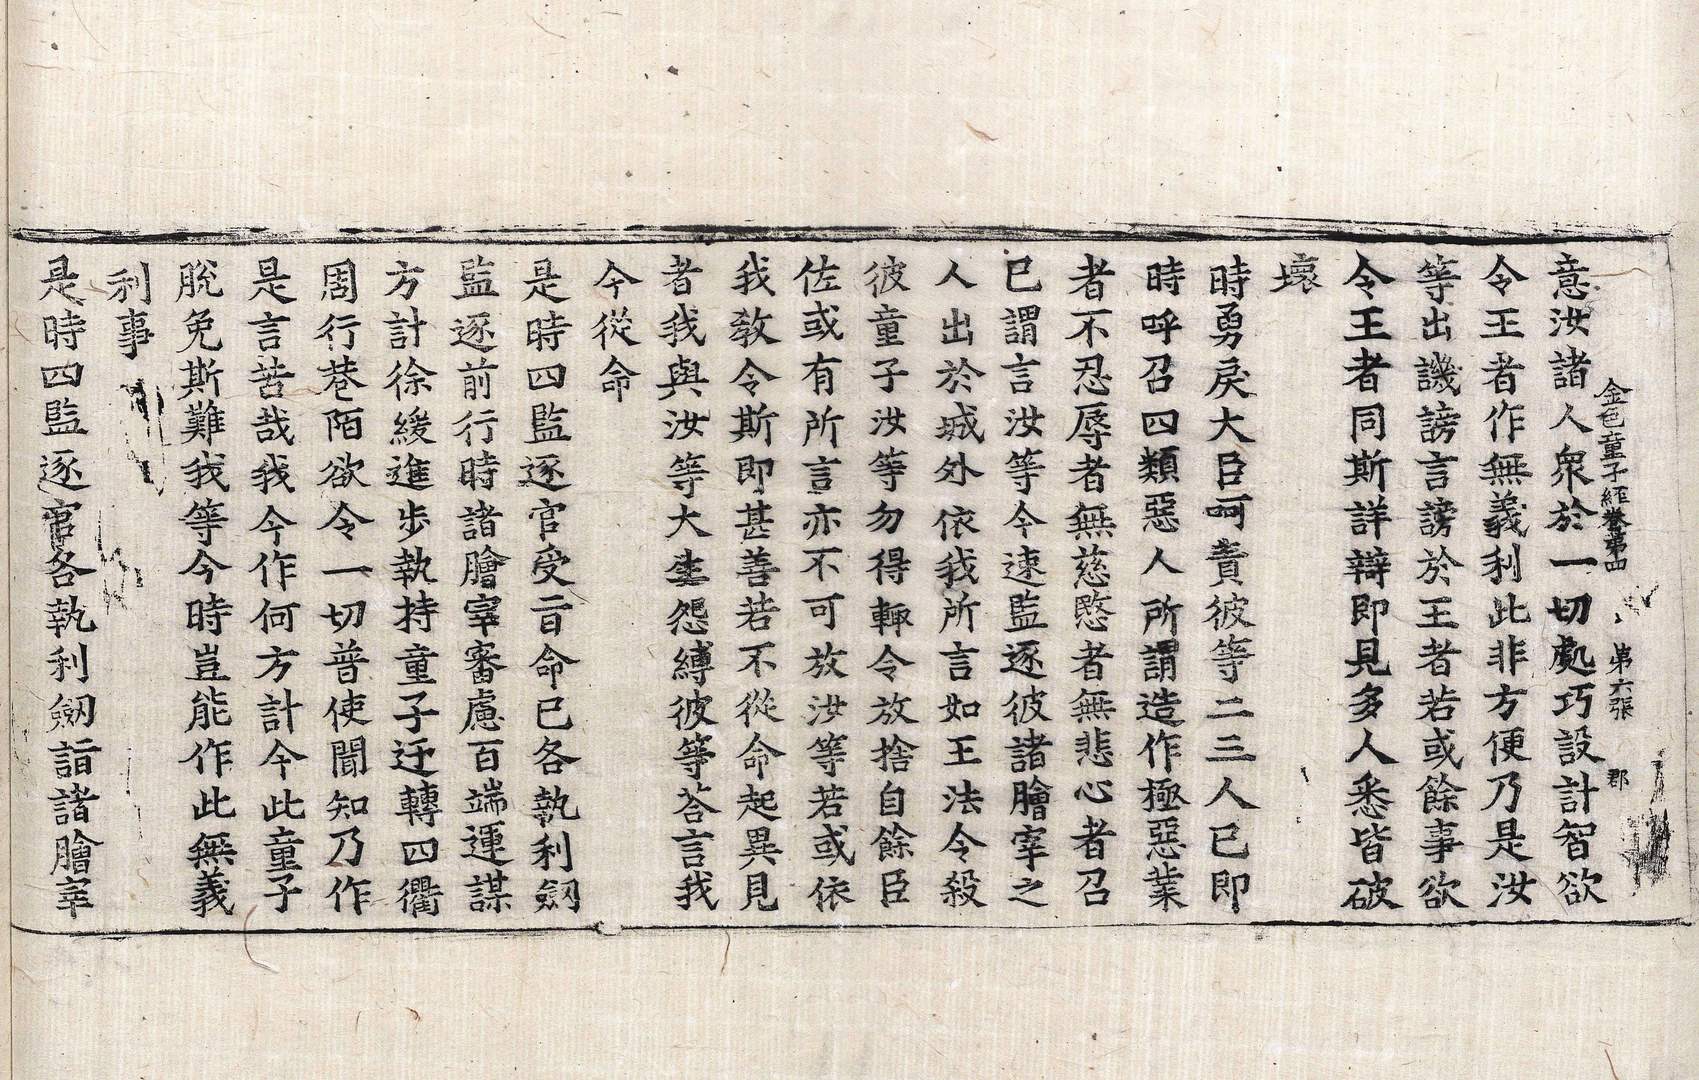 金色童子經卷第四 第六張 郡
意汝諸人衆於一切處巧設計智欲
令王者作無義利此非方便乃是汝
等出譏謗言謗於王者若或餘事欲
令王者同斯詳辯即見多人悉皆破
壞
時勇戾大臣呵責彼等二三人已即
時呼召四類惡人所謂造作極惡業
者不忍辱者無慈愍者無悲心者召
已謂言汝等今速監逐彼諸膾宰之
人出於城外依我所言如王法令殺
彼童子汝等勿得輙令放捨自餘臣
佐或有所言亦不可放汝等若或依
我教令斯即甚善若不從命起異見
者我與汝等大生怨縛彼等荅言我
今從命
是時四監逐官受旨命已各執利劔
監逐前行時諸膾宰審慮百端運謀
方計徐緩進步執持童子迂轉四衢
周行巷陌欲令一切普使聞知乃作
是言苦哉我今作何方計令此童子
脫免斯難我等今時豈能作此無義
利事
是時四監逐官各執利劔詣諸膾宰